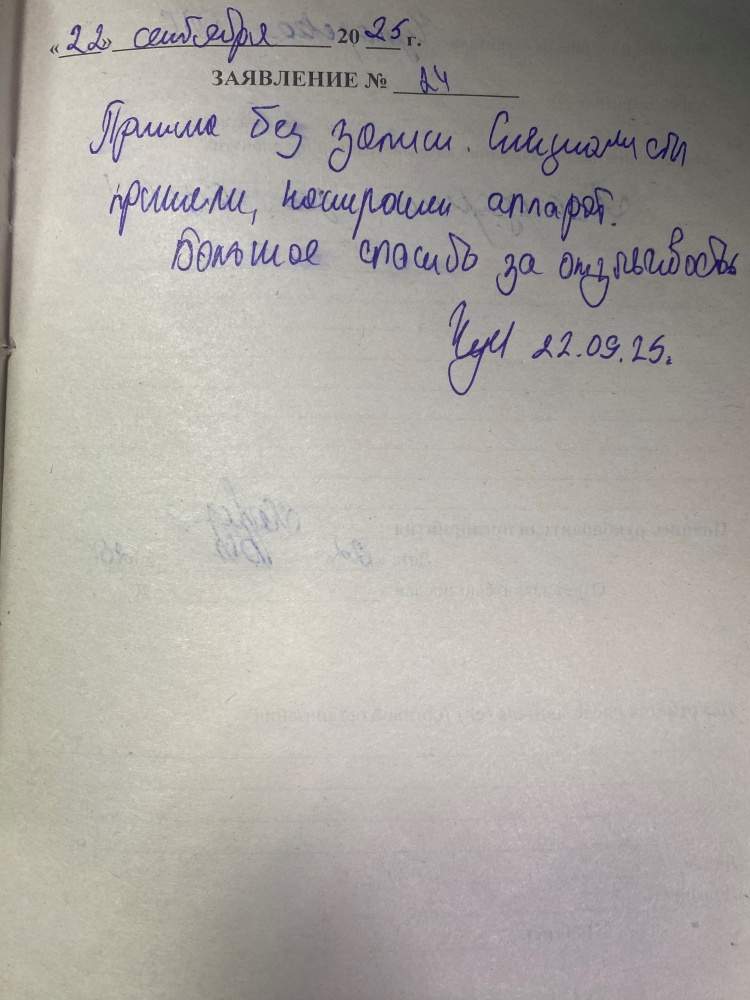 «22» сентября 2025 г.
ЗАЯВЛЕНИЕ № 24
Пришла без записи. Специалисты
приняли, настроили аппарат.
Большое спасибо за отзывчивость
22.09.25.